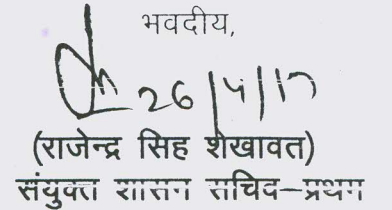 भवदीय,
26/4/17
(राजेन्द्र सिह शेखावत)
संयुक्त शासन सचिव-प्रथम